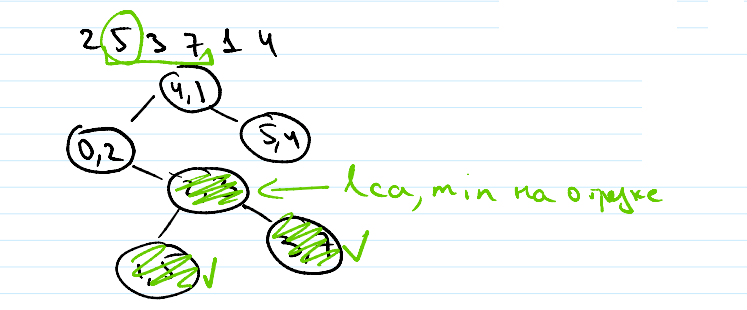 2 5 3 7 1 4
4,1
0,2
5,4
lca, min на отрезке